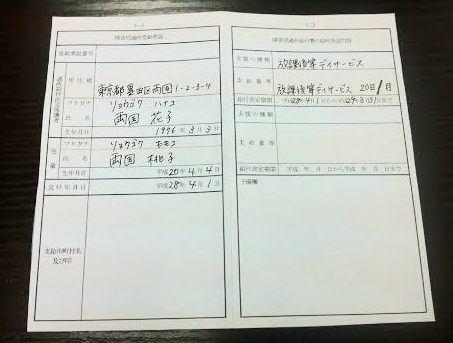 (一)
障害児通所受給者証
受給者証番号
居住地
東京都墨田区両国1-2-3-4
フリガナ
リョウゴク ハナコ
氏名
両国 花子
生年月日
1976年3月3日
児童
フリガナ
リョウゴク モモコ
氏名
両国 桃子
生年月日
平成20年4月4日
交付年月日
平成28年4月1日
支給市町村名
及び印
(二)
障害児通所給付費の給付決定内容
支援の種類
放課後等デイサービス
支給量等
放課後等デイサービス 20日/月
給付決定期間
平成28年4月1日から平成29年3月31日まで
支援の種類
支給量等
給付決定期間
平成 年 月 日から平成 年 月 日まで
予備欄